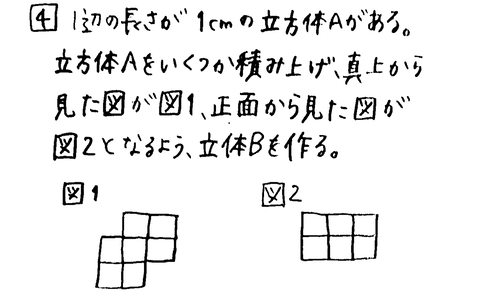 4 1辺の長さが1cmの立方体Aがある。
立方体Aをいくつか積み上げ、真上から
見た図が図1、正面から見た図が
図2となるよう、立体Bを作る。
図1 図2